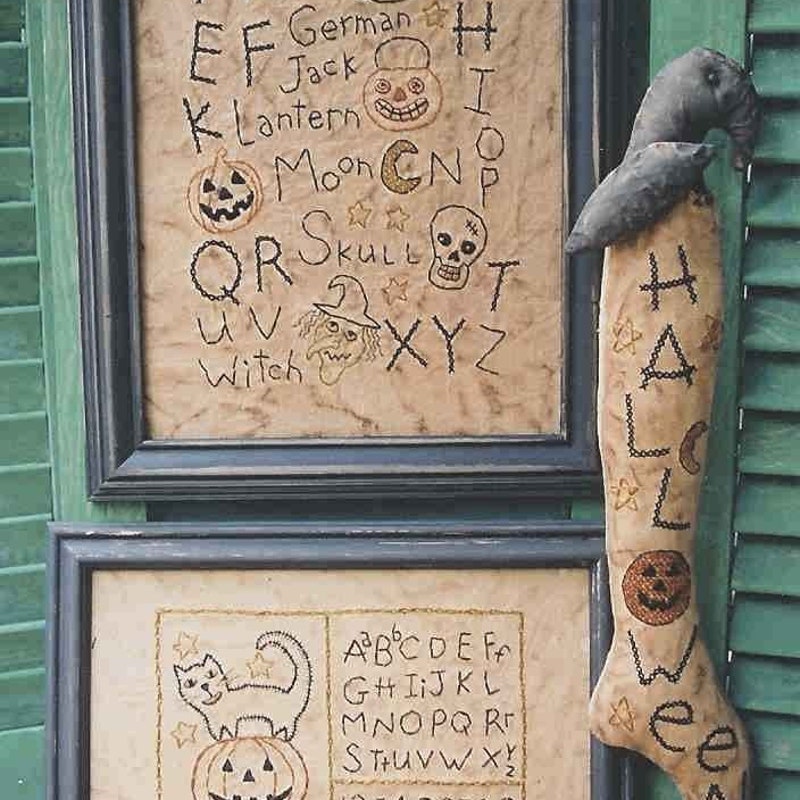 E F German H
Jack I
K Lantern O
Moon C N P
Q R Skull T
U V X Y Z
Witch
HALL
Ween
A a B b C D E F f
G H I i J K L
M N O P Q R r
S T t U V W X Y Z